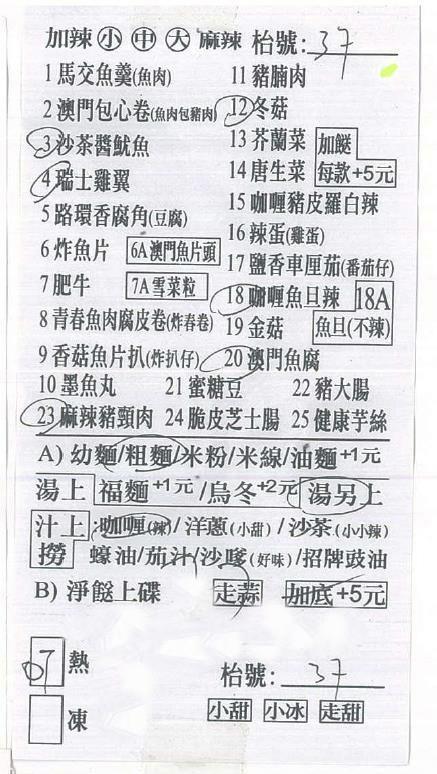 加辣 小 中 大 麻辣 枱號: 37
1 馬交魚羹(魚肉) 11 豬腩肉
2 澳門包心卷(魚肉包豬肉) 12 冬菇
3 沙茶醬魷魚 13 芥蘭菜 加餸
4 瑞士雞翼 14 唐生菜 每款+5元
5 路環香腐角(豆腐) 15 咖喱豬皮羅白辣
6 炸魚片 6A 澳門魚片頭 16 辣蛋(雞蛋)
7 肥牛 7A 雪菜粒 17 鹽香車厘茄(番茄仔)
18 咖喱魚旦辣 18A
8 青春魚肉腐皮卷(炸春卷) 19 金菇 魚旦(不辣)
9 香菇魚片扒(炸扒仔) 20 澳門魚腐
10 墨魚丸 21 蜜糖豆 22 豬大腸
23 麻辣豬頸肉 24 脆皮芝士腸 25 健康芋絲
A) 幼麵/粗麵/米粉/米線/油麵+1元
湯上 福麵+1元 /烏冬+2元 湯另上
汁上 :咖喱(辣)/ 洋蔥(小甜) / 沙茶(小小辣)
撈 蠔油/茄汁/沙嗲(好味) /招牌豉油
B) 淨餸上碟 走蒜 加底+5元
07 熱 枱號: 37
凍 小甜 小冰 走甜